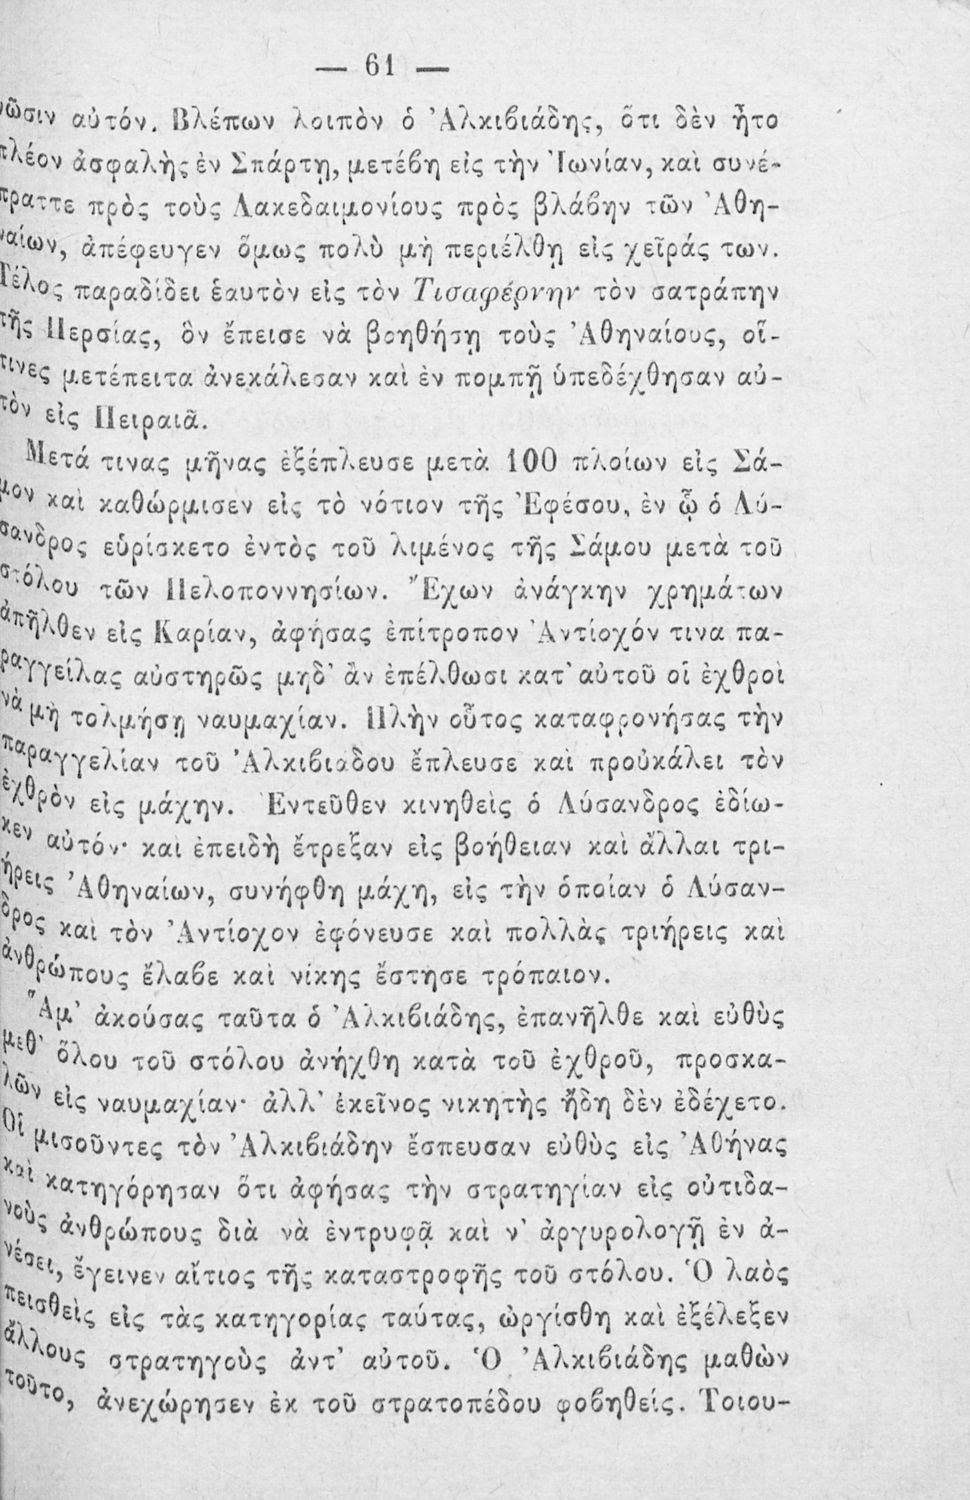 — 61 —
νῶσιν αὐτόν. Βλέπων λοιπὸν ὁ Ἀλκιβιάδης, ὅτι δὲν ἦτο
πλέον ἀσφαλὴς ἐν Σπάρτῃ, μετέβη εἰς τὴν Ἰωνίαν, καὶ συνέ-
πραττε πρὸς τοὺς Λακεδαιμονίους πρὸς βλάβην τῶν Ἀθη-
ναίων, ἀπέφευγεν ὅμως πολὺ μὴ περιέλθῃ εἰς χεῖράς των.
Τέλος παραδίδει ἑαυτὸν εἰς τὸν Τισαφέρνην τὸν σατράπην
τῆς Περσίας, ὃν ἔπεισε νὰ βοηθήσῃ τοὺς Ἀθηναίους, οἵ-
τινες μετέπειτα ἀνεκάλεσαν καὶ ἐν πομπῇ ὑπεδέχθησαν αὐ-
τὸν εἰς Πειραιᾶ.
Μετά τινας μῆνας ἐξέπλευσε μετὰ 100 πλοίων εἰς Σά-
μον καὶ καθώρμισεν εἰς τὸ νότιον τῆς Ἐφέσου, ἐν ᾧ ὁ Λύ-
σανδρος εὑρίσκετο ἐντὸς τοῦ λιμένος τῆς Σάμου μετὰ τοῦ
στόλου τῶν Πελοποννησίων. Ἔχων ἀνάγκην χρημάτων
ἀπῆλθεν εἰς Καρίαν, ἀφήσας ἐπίτροπον Ἀντίοχόν τινα πα-
ραγγείλας αὐστηρῶς μηδ' ἂν ἐπέλθωσι κατ' αὐτοῦ οἱ ἐχθροὶ
νὰ μὴ τολμήσῃ ναυμαχίαν. Πλὴν οὗτος καταφρονήσας τὴν
παραγγελίαν τοῦ Ἀλκιβιάδου ἔπλευσε καὶ προὐκάλει τὸν
ἐχθρὸν εἰς μάχην. Ἐντεῦθεν κινηθεὶς ὁ Λύσανδρος ἐδίω-
κεν αὐτόν· καὶ ἐπειδὴ ἔτρεξαν εἰς βοήθειαν καὶ ἄλλαι τρι-
ήρεις Ἀθηναίων, συνήφθη μάχη, εἰς τὴν ὁποίαν ὁ Λύσαν-
δρος καὶ τὸν Ἀντίοχον ἐφόνευσε καὶ πολλὰς τριήρεις καὶ
ἀνθρώπους ἔλαβε καὶ νίκης ἔστησε τρόπαιον.
Ἅμ' ἀκούσας ταῦτα ὁ Ἀλκιβιάδης, ἐπανῆλθε καὶ εὐθὺς
μεθ' ὅλου τοῦ στόλου ἀνήχθη κατὰ τοῦ ἐχθροῦ, προσκα-
λῶν εἰς ναυμαχίαν· ἀλλ' ἐκεῖνος νικητὴς ἤδη δὲν ἐδέχετο.
Οἱ μισοῦντες τὸν Ἀλκιβιάδην ἔσπευσαν εὐθὺς εἰς Ἀθήνας
καὶ κατηγόρησαν ὅτι ἀφήσας τὴν στρατηγίαν εἰς οὐτιδα-
νοὺς ἀνθρώπους διὰ νὰ ἐντρυφᾷ καὶ ν' ἀργυρολογῇ ἐν ἀ-
νέσει, ἔγεινεν αἴτιος τῆς καταστροφῆς τοῦ στόλου. Ὁ λαὸς
πεισθεὶς εἰς τὰς κατηγορίας ταύτας, ὠργίσθη καὶ ἐξέλεξεν
ἄλλους στρατηγοὺς ἀντ' αὐτοῦ. Ὁ Ἀλκιβιάδης μαθὼν
τοῦτο, ἀνεχώρησεν ἐκ τοῦ στρατοπέδου φοβηθείς. Τοιου-